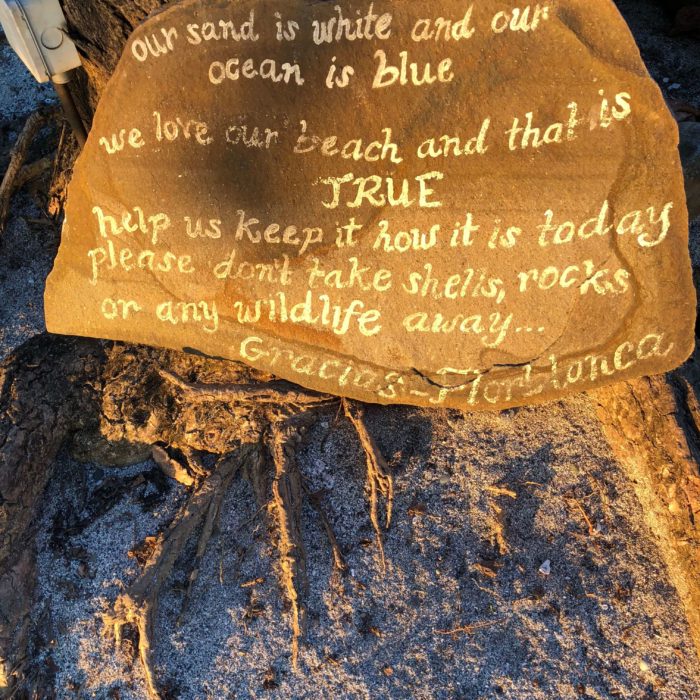 our sand is white and our
ocean is blue
we love our beach and that is
TRUE
help us keep it how it is today
please don't take shells, rocks
or any wildlife away...
Gracias - Florblanca